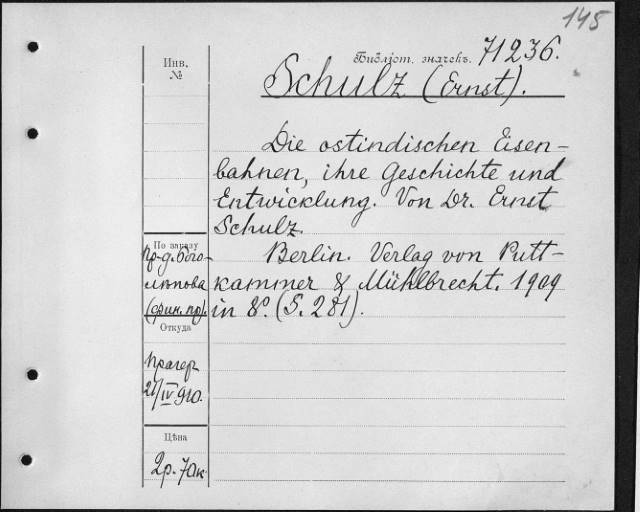 145
Библіот. значекъ. 71236.
Инв.
№
Schulz (Ernst).
Die ostindischen Eisen-
bahnen, ihre Geschichte und
Entwicklung. Von Dr. Ernst
Schulz.
Berlin. Verlag von Putt-
kammer & Mühlbrecht. 1909
in 8º. (S. 281).
По заказу
пр-д. Бого-
лѣпова
(фин. пр).
Откуда
Прагер
21/IV 910.
Цѣна
2р. 70к